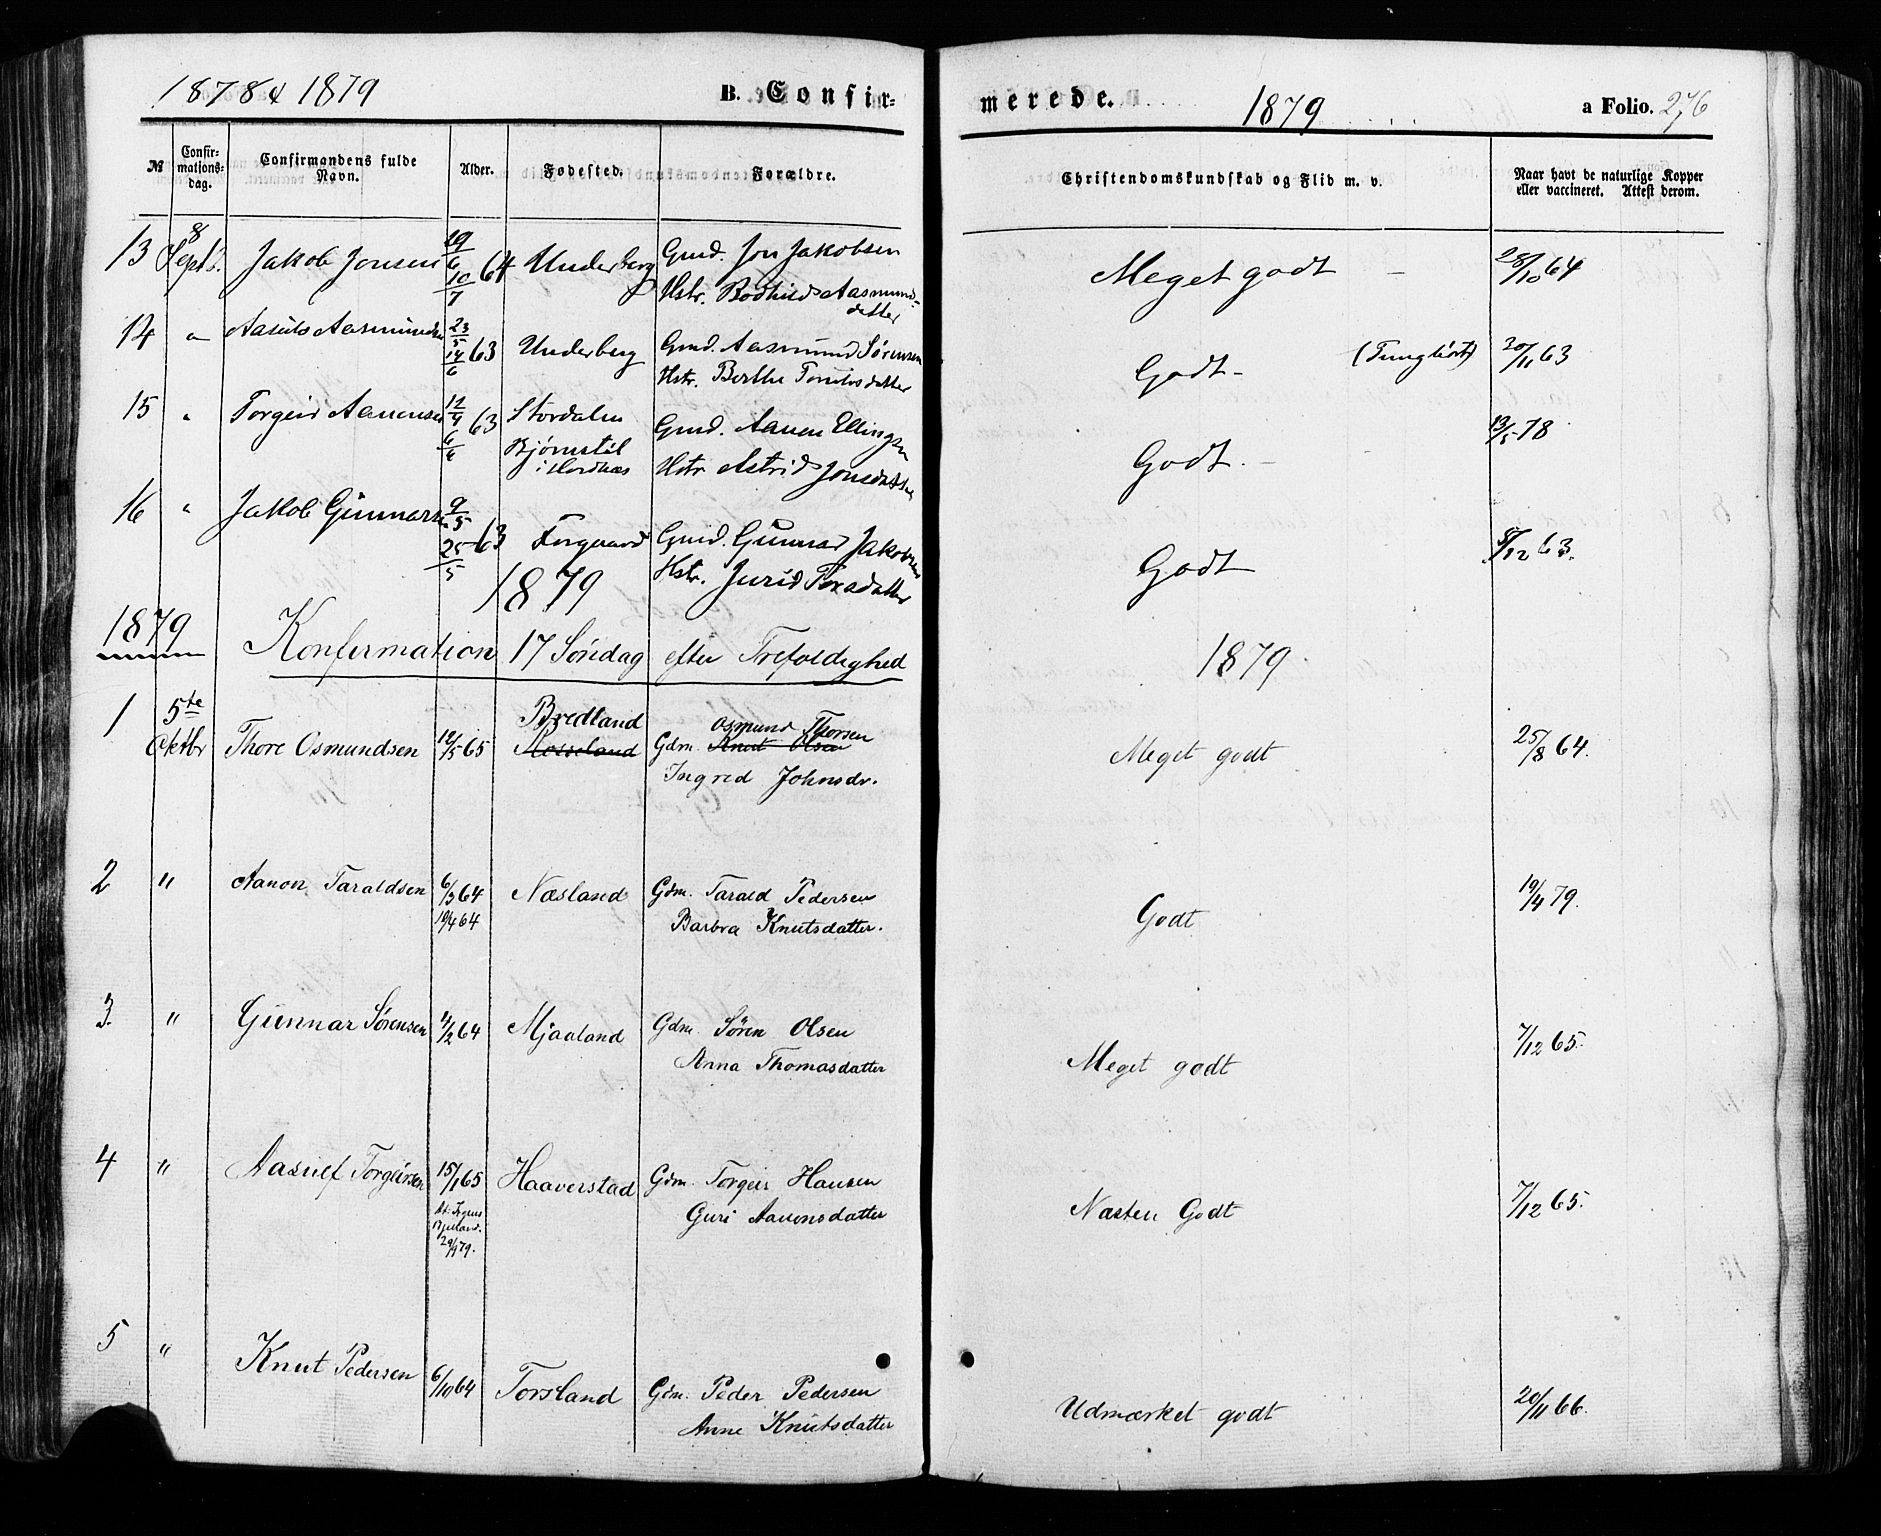 1878 & 1879 B. Confir- merede. 1879 a Folio. 276
№ Confir-mations-dag. Confirmandens fulde Navn. Alder. Fødested. Forældre. Christendomskundskab og Flid m. v. Naar havt de naturlige Kopper eller vaccineret. Attest derom.
13 8 Septb. Jakob Jonsen 19/6 64 Underberg Gmd. Jon Jakobsen Meget godt - 28/10 64
10/7 Hstr. Bodhild Aasmunds-
datter
14 " Aasulv Aasmundsen 23/5 63 Underberg Gmd. Aasmund Sørensen Godt - (Tunghørt) 20/11 63
14/6 Hstr. Berthe
15 " Torgeir Aanensen 12/4 63 Stordalen Gmd. Aanen Ellingsen Godt. - 13/5 78
6/6 Bjørnstøl Hstr Astrid Jonsdatter
i
16 " Jakob Gunnarsen 9/5 63 Gmd. Gunnar Jakobsen Godt 8/12 63.
25/5 Hstr. Jurid Torsdatter
1879
1879 Konfermation 17 Søndag efter Trefoldighed 1879
1 5te Bredland Osmund Thorsen
Oktbr Thore Osmundsen 12/5 65 Rosseland Gdm. Knut Olsen Meget godt 25/8 64.
Ingred Johnsdr.
2 " Aanon Taraldsen 6/3 64 Næsland Gdm. Tarald Pedersen Godt 19/4 79.
19/4 64 Barbra Knutsdatter.
3. " Gunnar Sørensen 4/2 64 Mjaaland Gdm. Sören Olsen Meget godt 7/12 65.
Anna Thomasdatter
4 " Aasulf Torgeirsen 15/1 65 Haaverstad Gdm. Torgeir Hansen Næsten Godt 7/12 65.
Guri Aanonsdatter
29/9 79.
5 " Knut Pedersen 6/10 64 Torsland Gdm. Peder Pedersen Udmærket godt 20/11 66.
Anne Knutsdatter